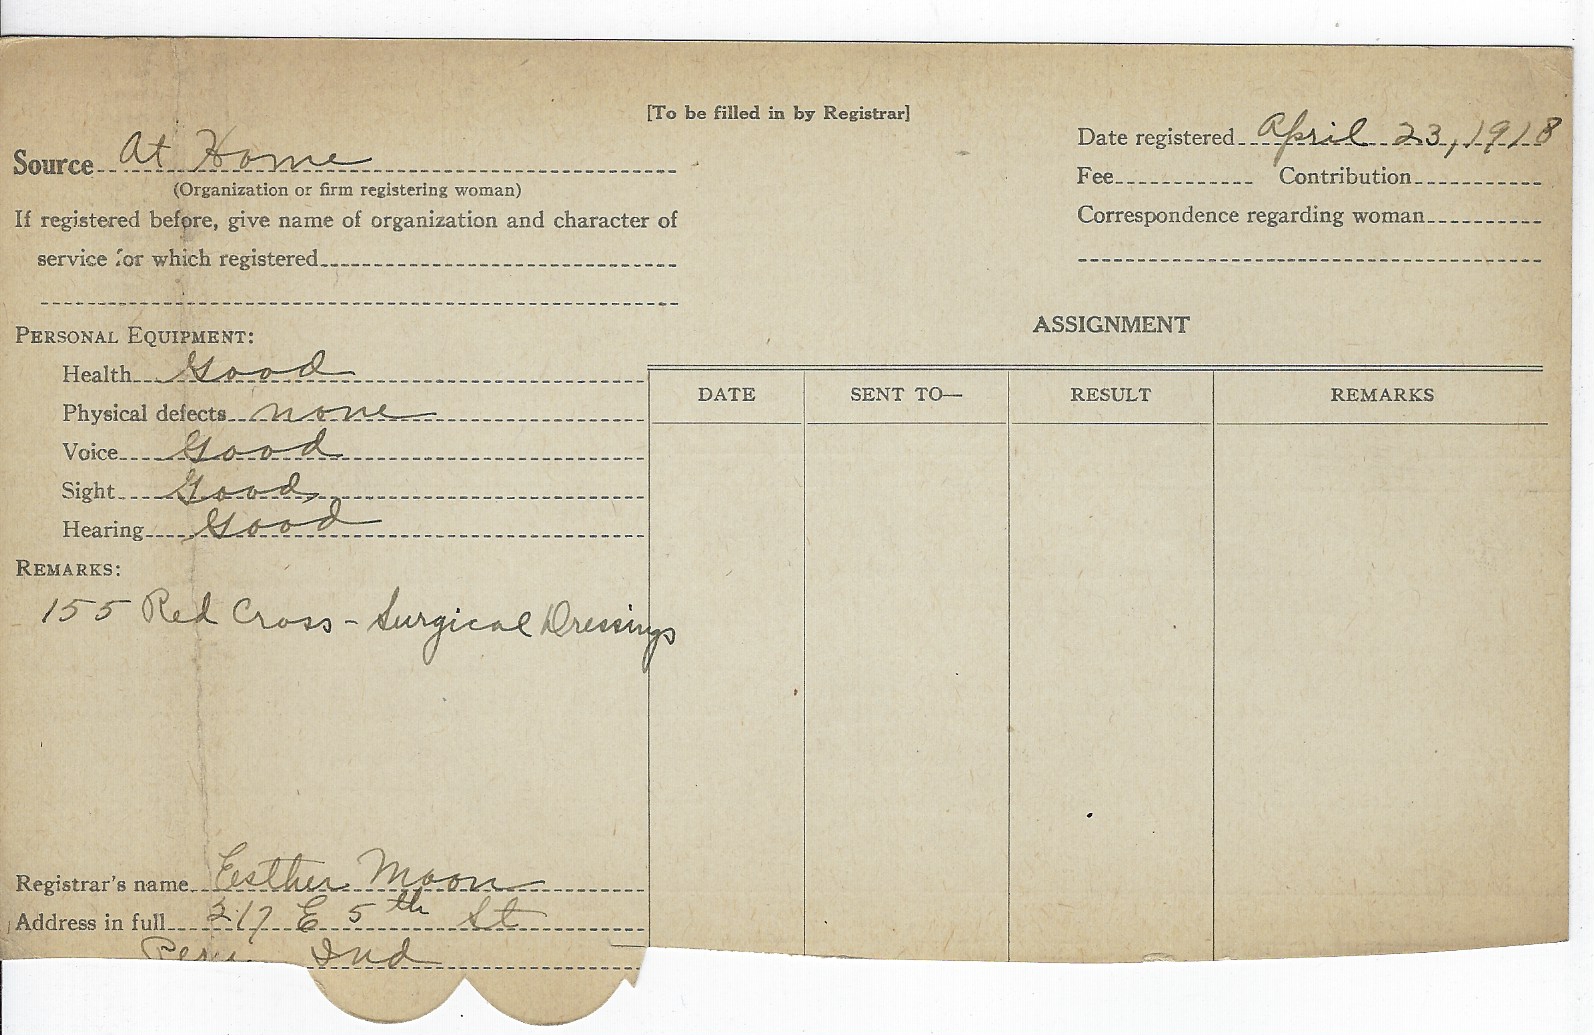 [To be filled in by Registrar]
Source At Home
(Organization or firm registering woman)
If registered before, give name of organization and character of
service for which registered
Date registered April 23, 1918
Fee Contribution
Correspondence regarding woman
PERSONAL EQUIPMENT:
Health Good
Physical defects none
Voice Good
Sight Good
Hearing Good
REMARKS:
155 Red Cross - Surgical Dressings
Registrar's name Esther Moon
Address in full 217 E 5th St
Peru Ind
ASSIGNMENT
DATE SENT TO— RESULT REMARKS